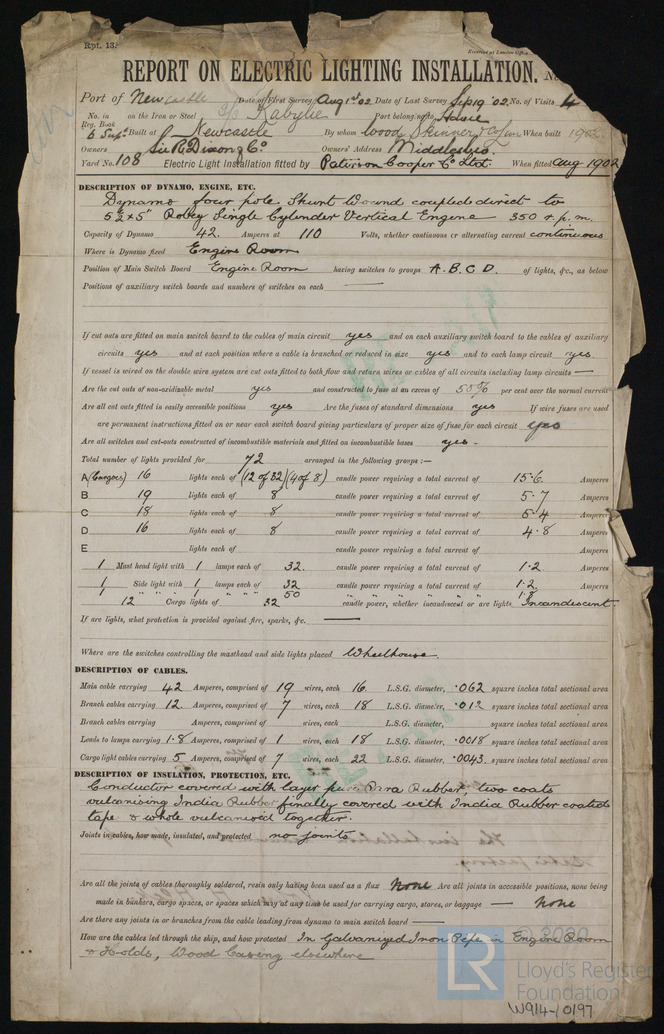 Rpt. 13.
Received at London Office
REPORT ON ELECTRIC LIGHTING INSTALLATION. No.
Port of Newcastle Date of First Survey Aug 1st 02 Date of Last Survey Sep 19 '02 No. of Visits 4
No. in Reg. Book on the Iron or Steel S/S Kabylie Port belonging to
6 Supt Built at Newcastle By whom Wood Skinner & Co When built 1902
Owners Sir R Dixon & Co. Owners' Address Middlesbro.
Yard No. 108 Electric Light Installation fitted by Paterson Cooper Co Ltd. When fitted Aug 1902
DESCRIPTION OF DYNAMO, ENGINE, ETC.
Dynamo four pole Shunt Wound coupled direct to
5½ x 5" Robey Single Cylinder Vertical Engine 350 r.p.m.
Capacity of Dynamo 42. Amperes at 110 Volts, whether continuous or alternating current continuous
Where is Dynamo fixed Engine Room
Position of Main Switch Board Engine Room having switches to groups A. B. C. D. of lights, &c., as below
Positions of auxiliary switch boards and numbers of switches on each —
If cut outs are fitted on main switch board to the cables of main circuit yes and on each auxiliary switch board to the cables of auxiliary
circuits yes and at each position where a cable is branched or reduced in size yes and to each lamp circuit yes.
If vessel is wired on the double wire system are cut outs fitted to both flow and return wires or cables of all circuits including lamp circuits —
Are the cut outs of non-oxidizable metal yes and constructed to fuse at an excess of 50% per cent over the normal current
Are all cut outs fitted in easily accessible positions yes Are the fuses of standard dimensions yes If wire fuses are used
are permanent instructions fitted on or near each switch board giving particulars of proper size of fuse for each circuit yes
Are all switches and cut-outs constructed of incombustible materials and fitted on incombustible bases yes.
Total number of lights provided for 72 arranged in the following groups :—
A (Cargoes) 16 lights each of (12 of 32)(4 of 8) candle power requiring a total current of 15.6. Amperes
B 19 lights each of 8 candle power requiring a total current of 5.7 Amperes
C 18 lights each of 8 candle power requiring a total current of 5.4 Amperes
D 16 lights each of 8 candle power requiring a total current of 4.8 Amperes
E lights each of candle power requiring a total current of Amperes
1 Mast head light with 1 lamps each of 32. candle power requiring a total current of 1.2 Amperes
1 Side light with 1 lamps each of 32 candle power requiring a total current of 1.2 Amperes
1 " " " 1 " " " 50 " " " " 1.8
12 Cargo lights of 32 candle power, whether incandescent or arc lights Incandescent.
If arc lights, what protection is provided against fire, sparks, &c. —
Where are the switches controlling the masthead and side lights placed Wheelhouse.
DESCRIPTION OF CABLES.
Main cable carrying 42 Amperes, comprised of 19 wires, each 16 L.S.G. diameter, .062 square inches total sectional area
Branch cables carrying 12 Amperes, comprised of 7 wires, each 18 L.S.G. diameter, .012 square inches total sectional area
Branch cables carrying Amperes, comprised of wires, each L.S.G. diameter, square inches total sectional area
Leads to lamps carrying 1.8 Amperes, comprised of 1 wires, each 18 L.S.G. diameter, .0018 square inches total sectional area
Cargo light cables carrying 5 Amperes, comprised of 7 wires, each 22 L.S.G. diameter, .0043 square inches total sectional area
DESCRIPTION OF INSULATION, PROTECTION, ETC.
Conductor covered with layer pure Para Rubber, two coats
vulcanising India Rubber finally covered with India Rubber coated
tape & whole vulcanised together.
Joints in cables, how made, insulated, and protected no joints.
Are all the joints of cables thoroughly soldered, resin only having been used as a flux None Are all joints in accessible positions, none being
made in bunkers, cargo spaces, or spaces which may at any time be used for carrying cargo, stores, or baggage — None
Are there any joints in or branches from the cable leading from dynamo to main switch board —
How are the cables led through the ship, and how protected In Galvanized Iron Pipe in Engine Room
& Holds, Wood Casing elsewhere
LR © 2020
Lloyd's Register
Foundation
W914-0197